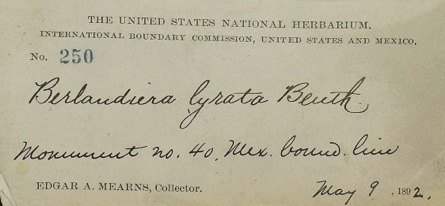 THE UNITED STATES NATIONAL HERBARIUM.
INTERNATIONAL BOUNDARY COMMISSION, UNITED STATES AND MEXICO.
No. 250
Berlandiera lyrata Benth.
Monument no. 40, Mex. bound. line
EDGAR A. MEARNS, Collector. May 9, 1892.